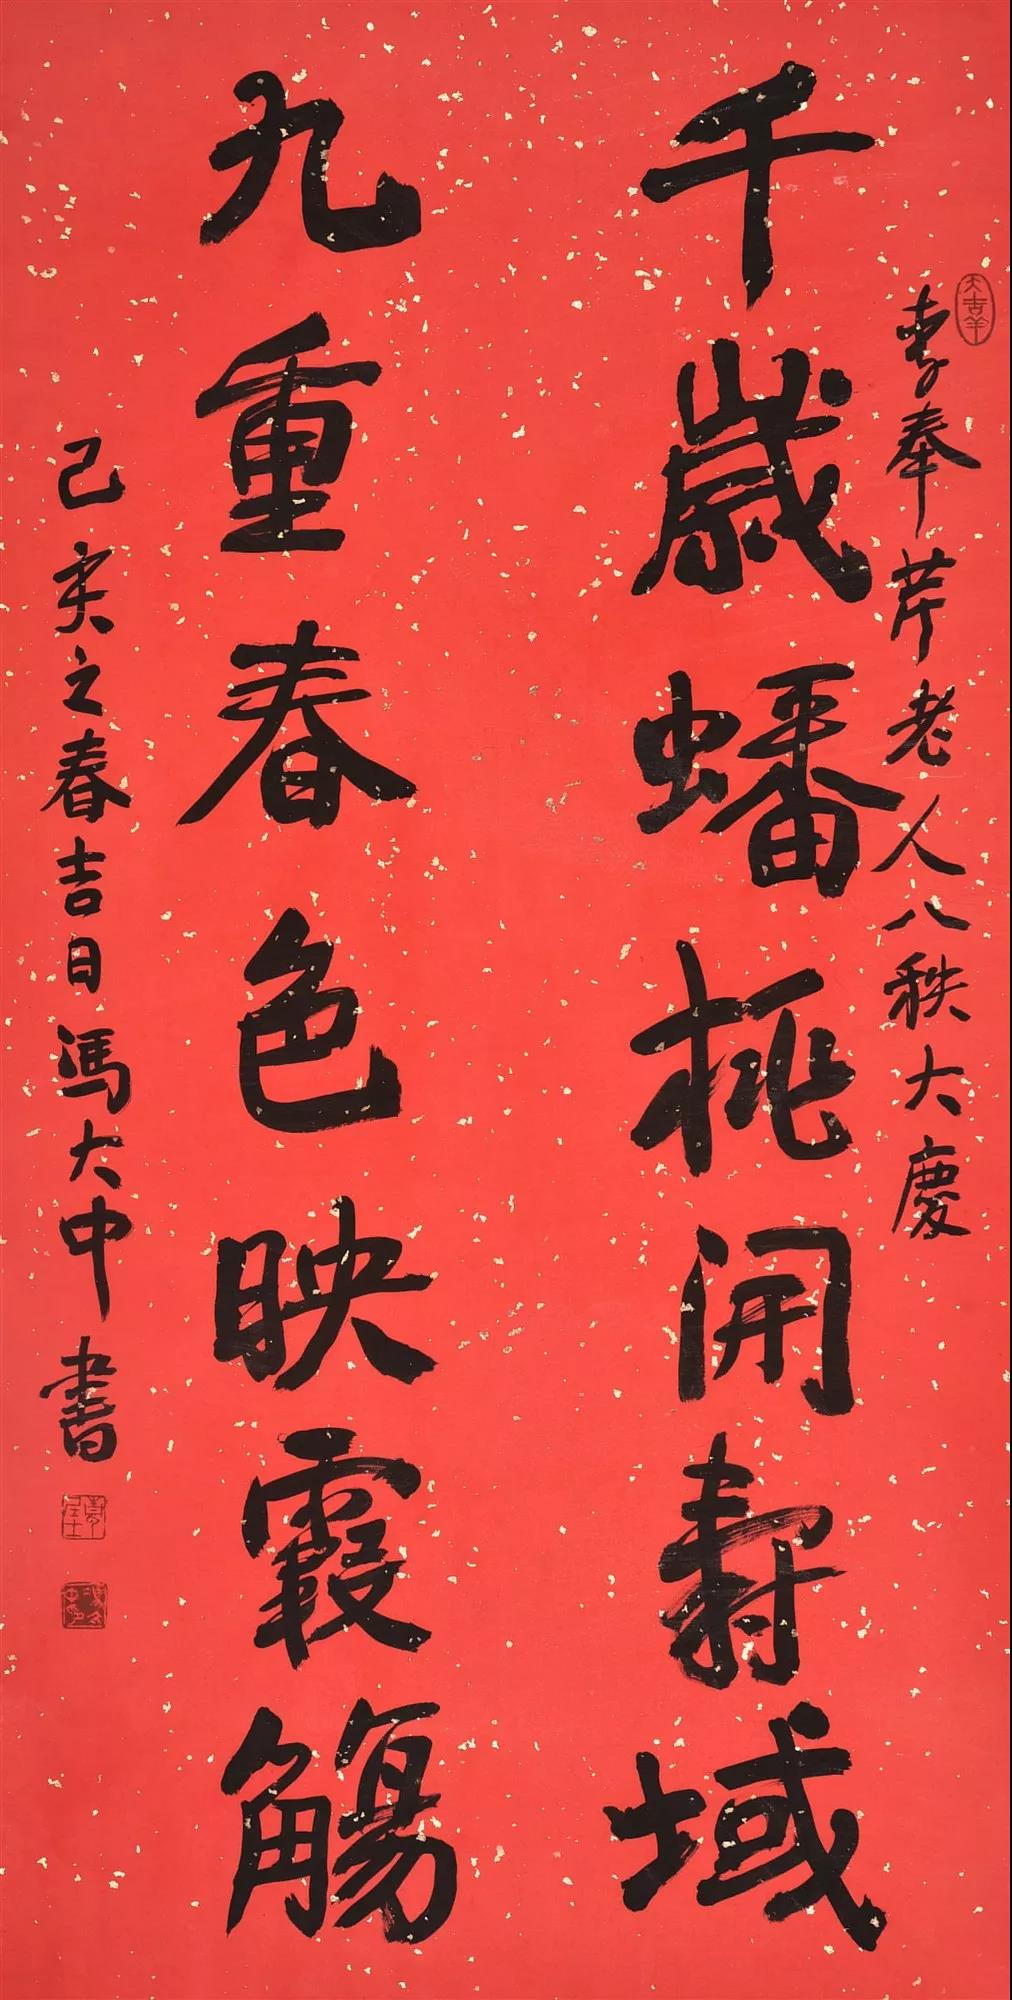 大吉羊
李奉芹老人八秩大慶
千歲蟠桃開壽域
九重春色映霞觴
己亥之春吉日馮大中書